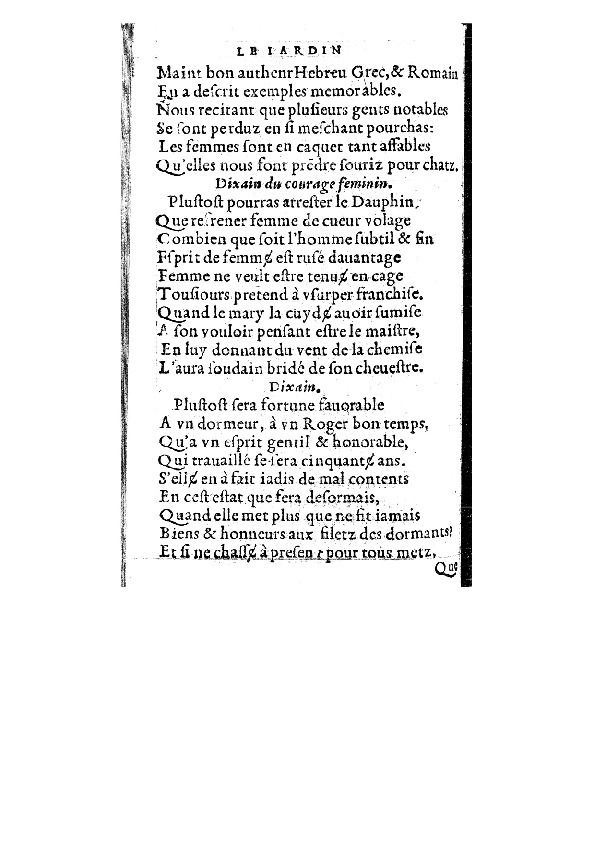 LE IARDIN
Maint bon authenr Hebreu Grec, & Romain
En a deſcrit exemples memorables.
Nous recitant que pluſieurs gents notables
Se ſont perduz en ſi meſchant pourchas:
Les femmes ſont en caquet tant affables
Qu'elles nous font prẽdre ſouriz pour chatz.
Dixain du courage feminin.
Pluſtoſt pourras arreſter le Dauphin,
Que refrener femme de cueur volage
Combien que ſoit l'homme ſubtil & fin
Eſprit de femmɇ eſt ruſé dauantage
Femme ne veult eſtre tenuɇ en cage
Touſiours pretend à vſurper franchiſe.
Quand le mary la cuydɇ auoir ſumiſe
A ſon vouloir penſant eſtre le maiſtre,
En luy donnant du vent de la chemiſe
L'aura ſoudain bridé de ſon cheueſtre.
Dixain.
Pluſtoſt ſera fortune fauorable
A vn dormeur, à vn Roger bon temps,
Qu'a vn eſprit gentil & honorable,
Qui trauaillé ſe ſera cinquantɇ ans.
S'ellɇ en à fait iadis de mal contents
En ceſt eſtat que fera deſormais,
Quand elle met plus que ne fit iamais
Biens & honneurs aux filetz des dormants?
Et ſi ne chaſſɇ à preſent pour tous metz,
Que